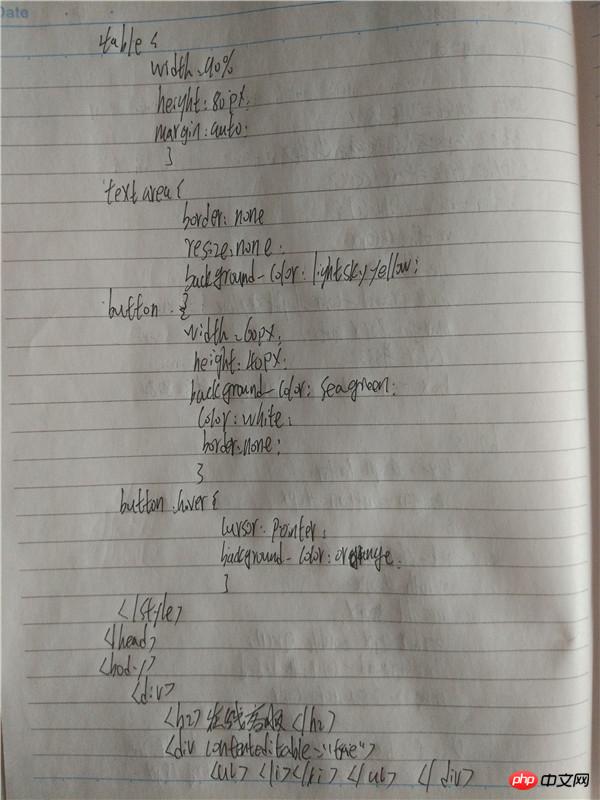 Date
table {
width:90%
height:80px;
margin:auto;
}
text area {
border:none
resize:none;
background-color:lightskyyellow;
}
button {
width:60px;
height:40px;
background-color:seagreen;
color:white;
border:none;
}
button:hover {
cursor:pointer;
background-color:orange;
}
</style>
</head>
<body>
<div>
<h2> 在线客服 </h2>
<div contenteditable="true">
<ul> <li></li> </ul> </div>
php 中文网